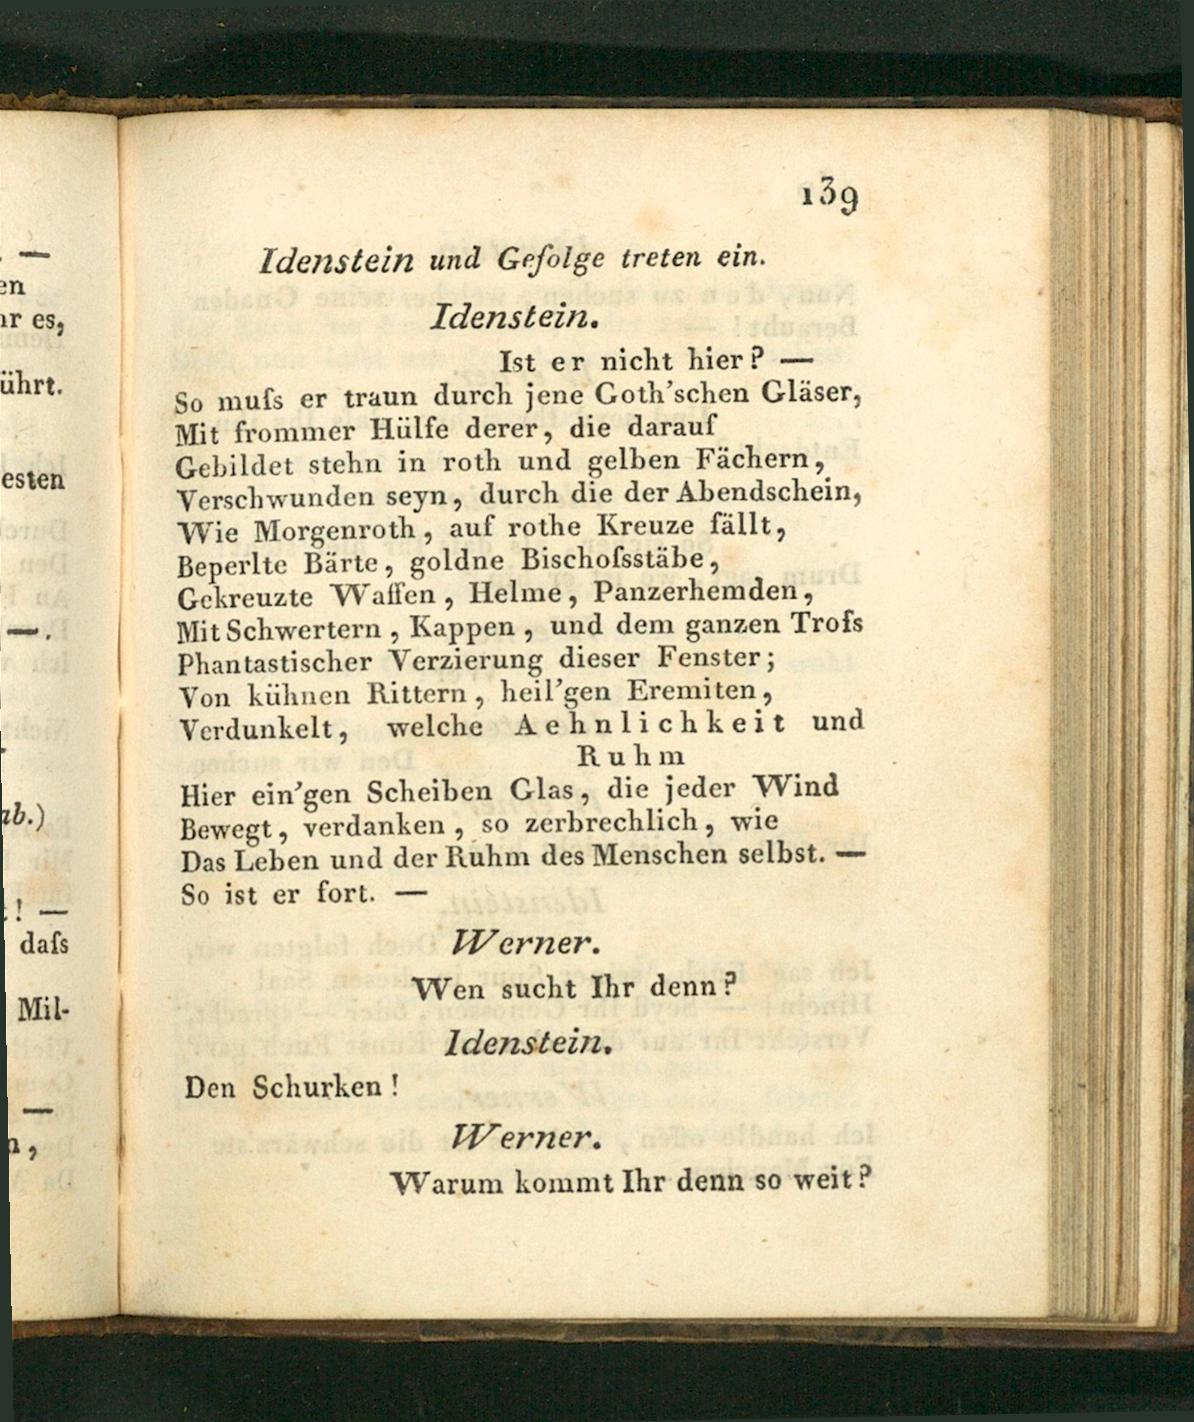 139
Idenstein und Gefolge treten ein.
Idenstein.
Ist er nicht hier? —
So muſs er traun durch jene Goth'schen Gläser,
Mit frommer Hülfe derer, die darauf
Gebildet stehn in roth und gelben Fächern,
Verschwunden seyn, durch die der Abendschein,
Wie Morgenroth, auf rothe Kreuze fällt,
Beperlte Bärte, goldne Bischofsstäbe,
Gekreuzte Waffen, Helme, Panzerhemden,
Mit Schwertern, Kappen, und dem ganzen Troſs
Phantastischer Verzierung dieser Fenster;
Von kühnen Rittern, heil'gen Eremiten,
Verdunkelt, welche Aehnlichkeit und
Ruhm
Hier ein'gen Scheiben Glas, die jeder Wind
Bewegt, verdanken, so zerbrechlich, wie
Das Leben und der Ruhm des Menschen selbst. —
So ist er fort. —
Werner.
Wen sucht Ihr denn?
Idenstein.
Den Schurken!
Werner.
Warum kommt Ihr denn so weit?